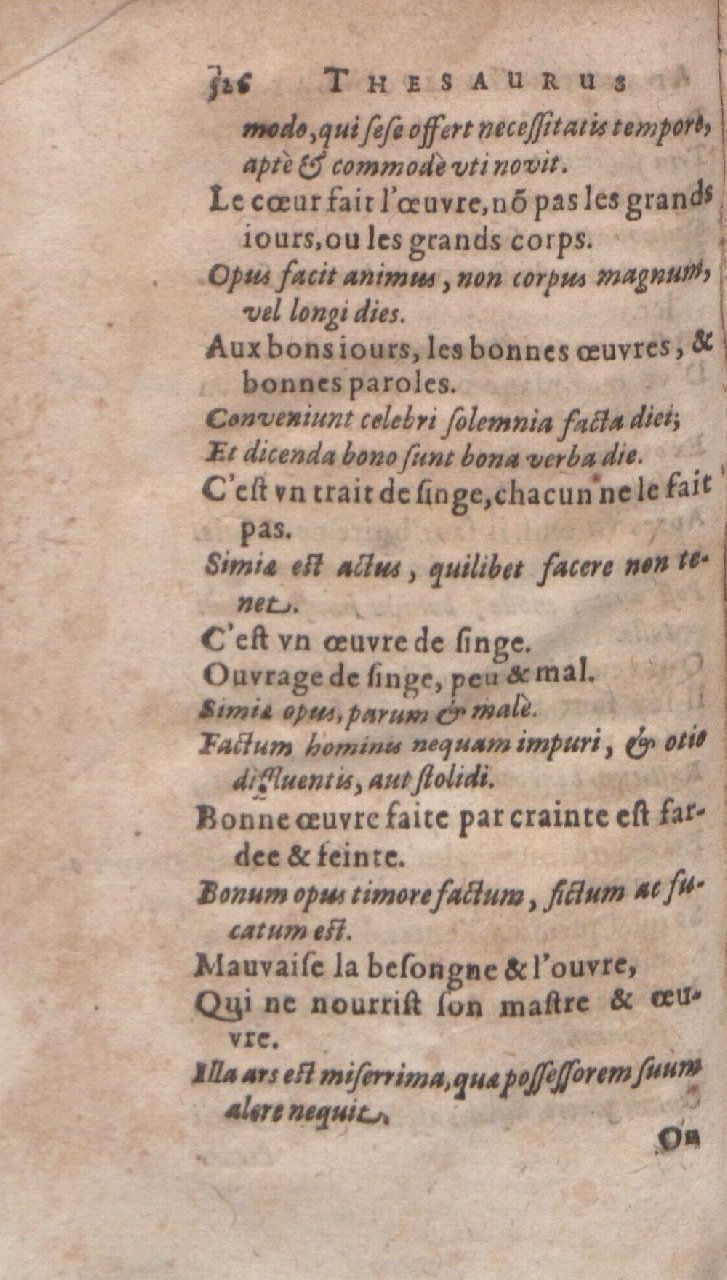 526 THESAURUS
modo, qui ſeſe offert neceſſitatis tempore,
aptè & commodè vti novit.
Le cœur fait l'œuvre, nō pas les grands
iours, ou les grands corps.
Opus facit animus, non corpus magnum,
vel longi dies.
Aux bons iours, les bonnes œuvres, &
bonnes paroles.
Conveniunt celebri ſolemnia facta diei;
Et dicenda bono ſunt bona verba die.
C'eſt vn trait de ſinge, chacun ne le fait
pas.
Simiæ eſt actus, quilibet facere non te-
net.
C'eſt vn œuvre de ſinge.
Ouvrage de ſinge, peu & mal.
Simiæ opus, parum & malè.
Factum hominis nequam impuri, & otio
diffluentis, aut ſtolidi.
Bonne œuvre faite par crainte eſt far-
dee & feinte.
Bonum opus timore factum, fictum ac fu-
catum eſt.
Mauvaiſe la beſongne & l'ouvre,
Qui ne nourriſt ſon maſtre & œu-
vre.
Illa ars eſt miſerrima, quæ poſſeſſorem ſuum
alere nequit.
On